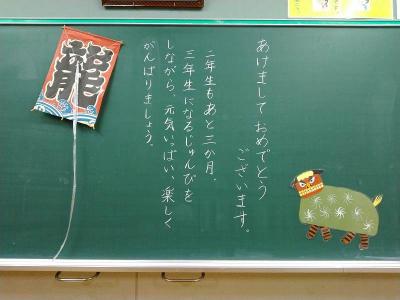 あけましておめでとう
ございます。
二年生もあと三か月。
三年生になるじゅんびを
しながら、元気いっぱい、楽しく
がんばりましょう。
龍